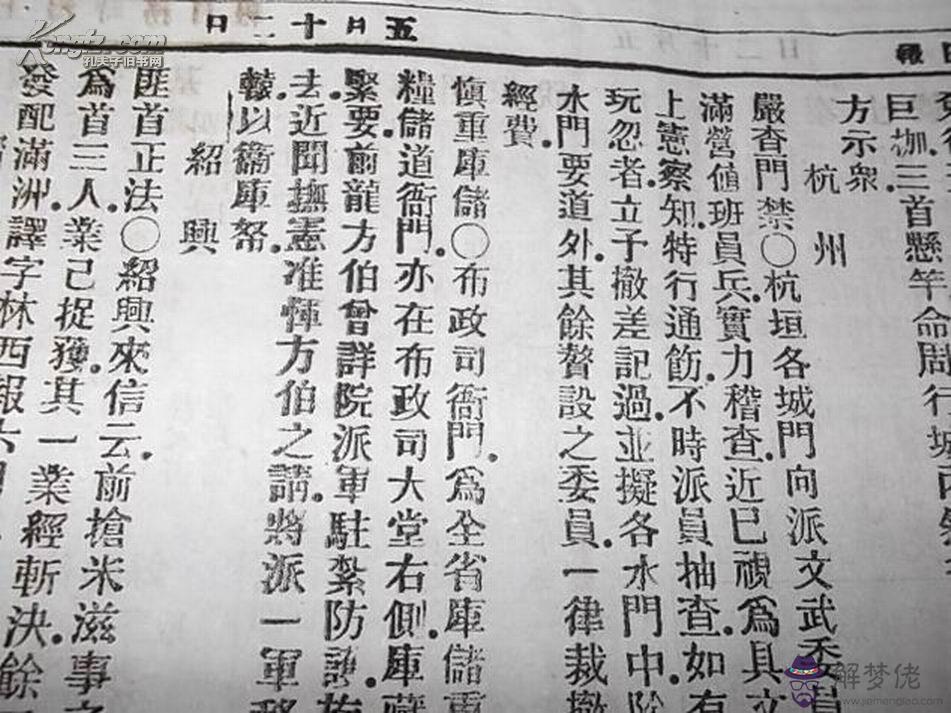 日二十月五
報
巨枷三首懸竿命問行城內
方示衆
杭州
嚴查門禁〇杭垣各城門向派文武委員
滿營值班員兵實力稽查近已視爲具文
上憲察知特行通飭不時派員抽查如有
玩忽者立予撤差記過並擬各水門中除
水門要道外其餘贅設之委員一律裁撤
經費
愼重庫儲〇布政司衙門爲全省庫儲重
糧儲道衙門亦在布政司大堂右側庫藏
緊要前龍方伯曾詳院派軍駐紮防護
去近聞撫憲准惲方伯之請將派一軍移
轅以衞庫帑
紹興
匪首正法〇紹興來信云前搶米滋事之
爲首三人業已捉獲其一業經斬決餘
發配滿洲譯字林西報
孔夫子旧书网
解梦佬
www.jiemenglao.com